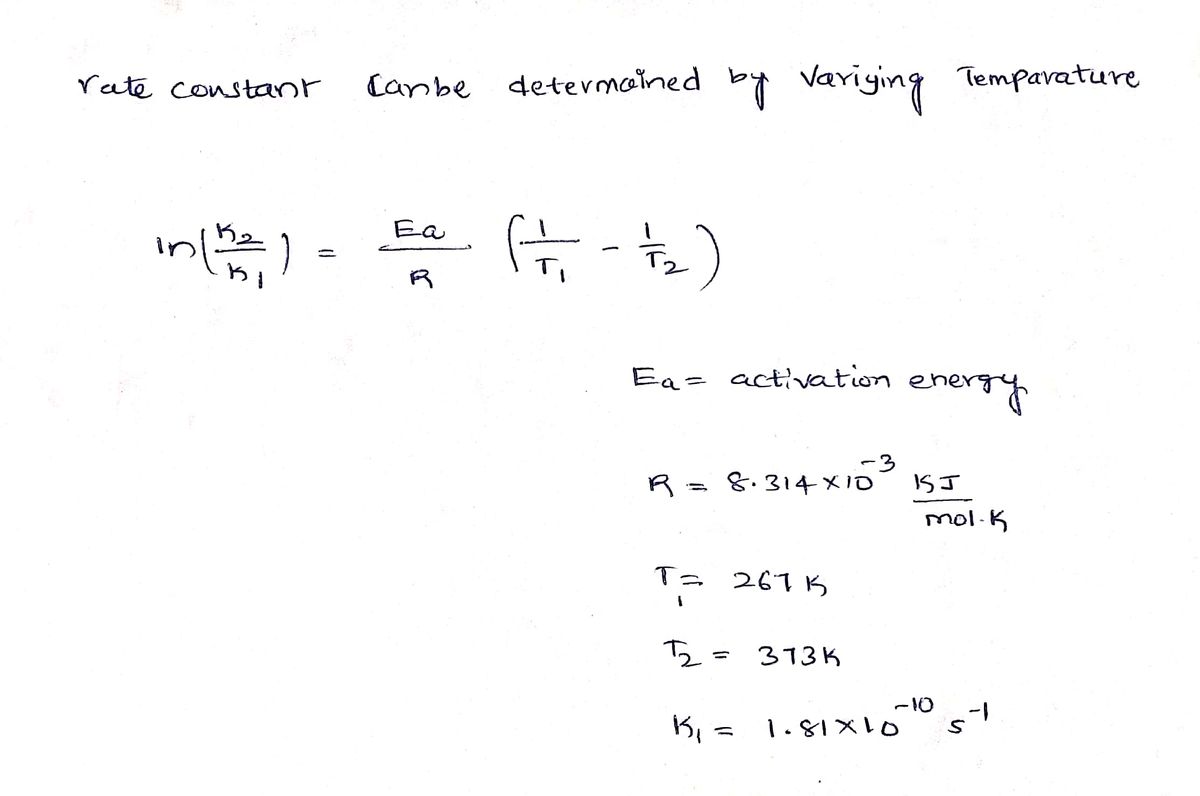 rate constant Canbe determained by Variying Temparature
ln(K2/K1) = Ea/R (1/T1 - 1/T2)
Ea = activation energy
R = 8.314 × 10^-3 KJ/mol.K
T1 = 267 K
T2 = 373 K
K1 = 1.81 × 10^-10 s^-1